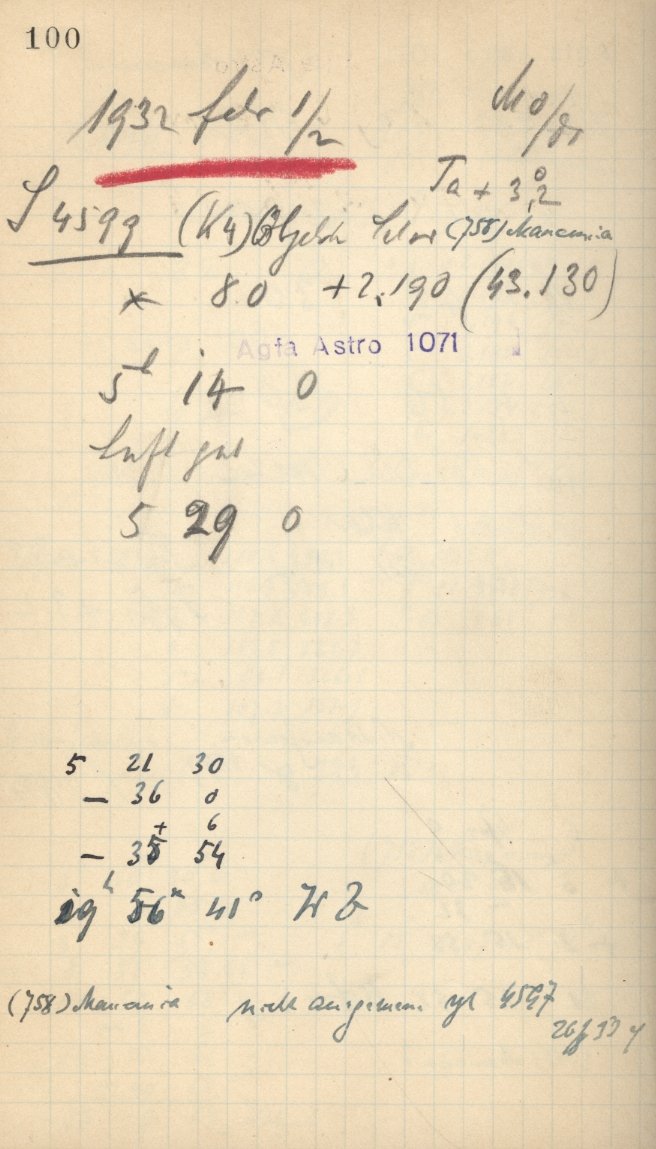 100
1932 Febr 1/2
Ta + 3,2
S 4599 (K4) Objekt (758) Mancunia
* 8.0 +2.190 (43.130)
Agfa Astro 1071
5 14 0
Luft gut
5 29 0
5 21 30
- 36 0
+ 6
- 35 54
19h 56m 41s WZ
(758) Mancunia nicht vgl 4597